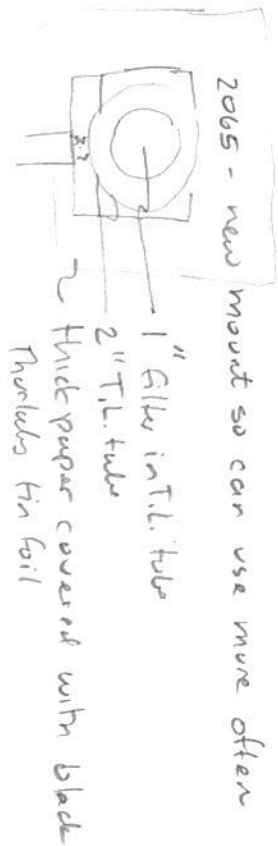 2065 - new mount so can use more often
1" filter in T.L. tube
2" T.L. tube
thick paper covered with black
Thorlabs tin foil